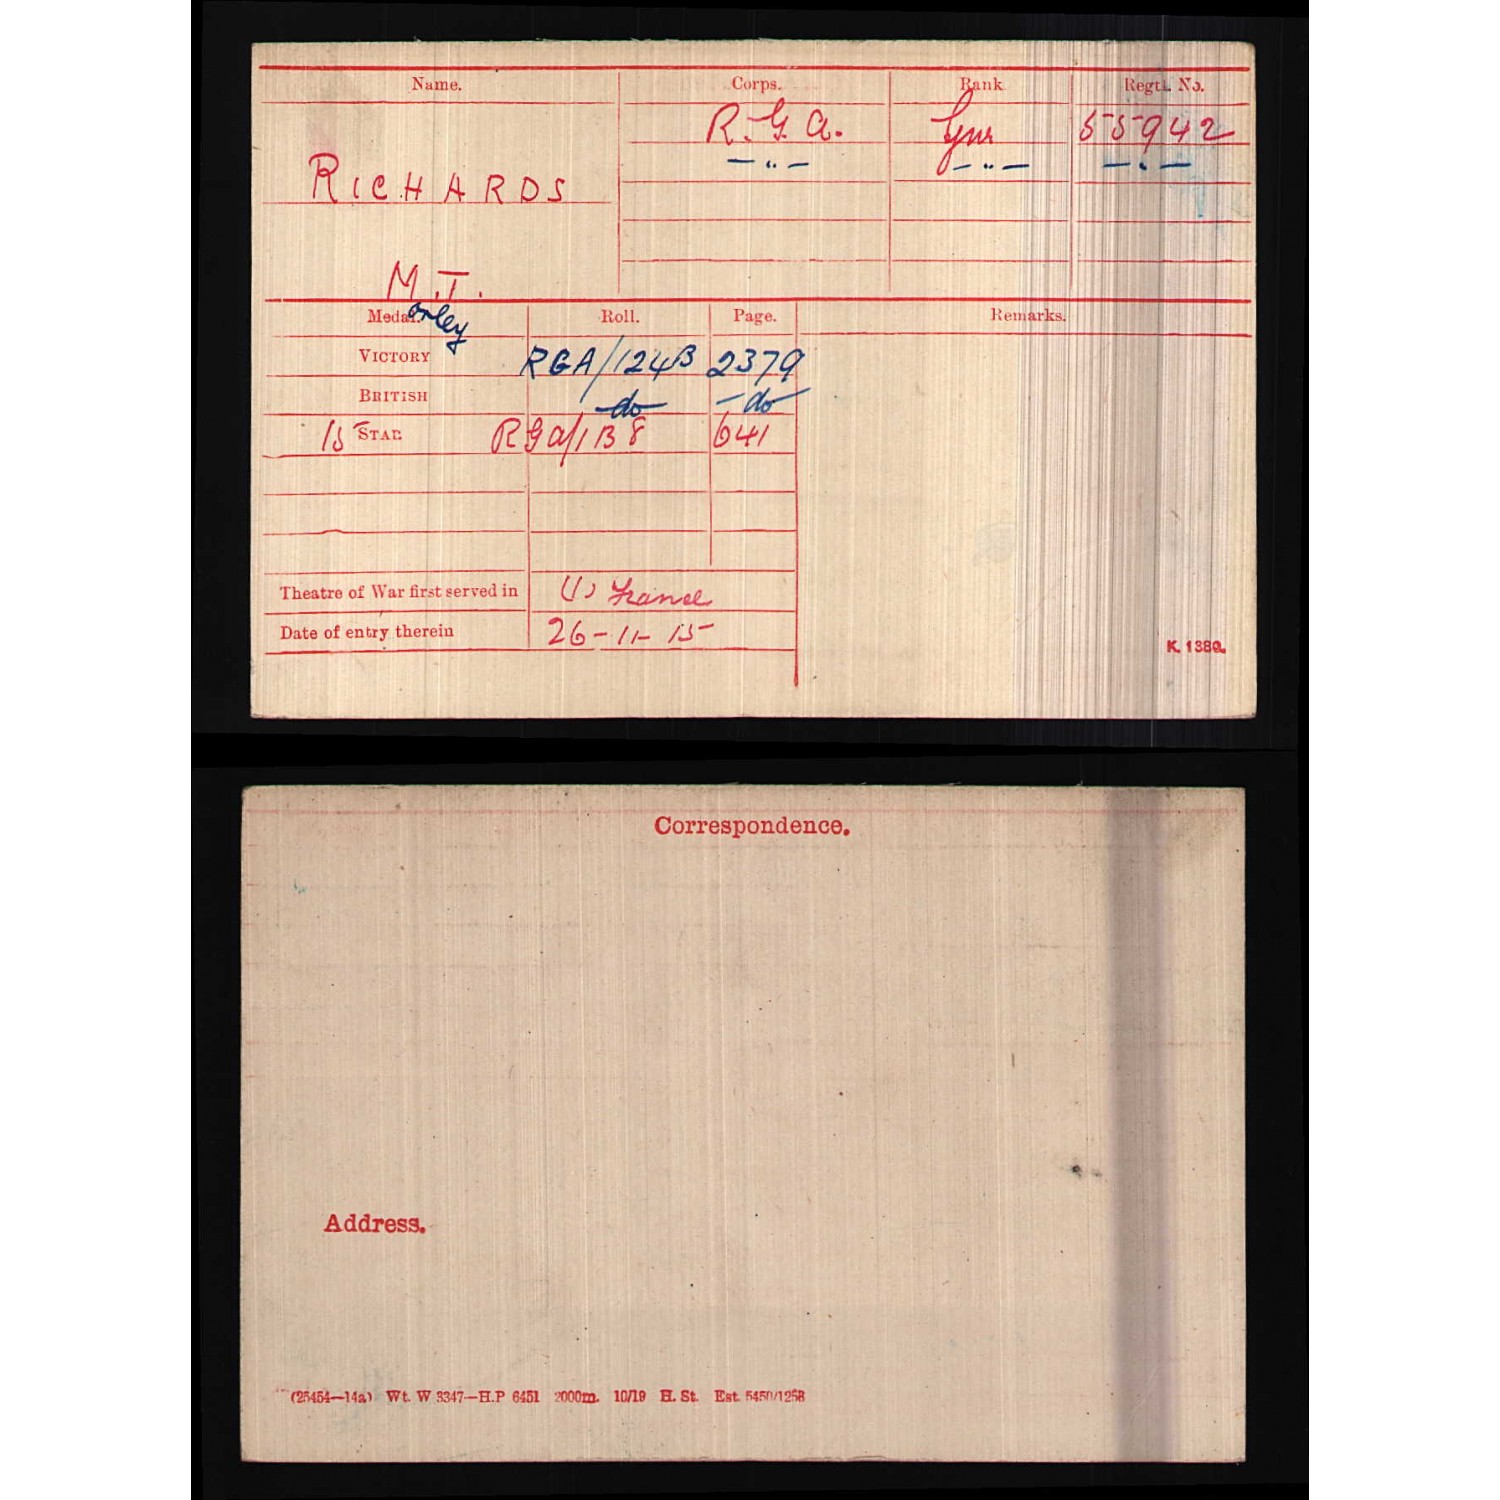 Name. Corps. Rank Regtl. No.
R.G.A. Gnr 55942
— " — — " — — " —
RICHARDS
M.T.
orley
Medal. Roll. Page. Remarks.
VICTORY RGA/124B 2379
BRITISH do do
15 STAR RGA/1B8 641
Theatre of War first served in (1) France
Date of entry therein 26-11-15
K. 1380.
Correspondence.
Address.
(25454—14a) Wt. W 3347—H.P 6451 2000m. 10/19 H. St. Est. 5450/1258